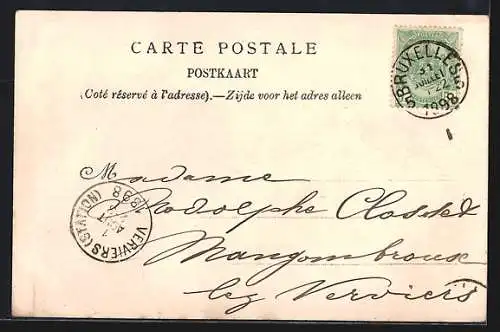 CARTE POSTALE
POSTKAART
(Coté réservé à l'adresse).—Zijde voor het adres alleen
BRUXELLES
31
JUILLET
1898
Madame
Rodolphe Closset
Mangombroux
lez Verviers
VERVIERS (STATION)
1
AOUT
1898